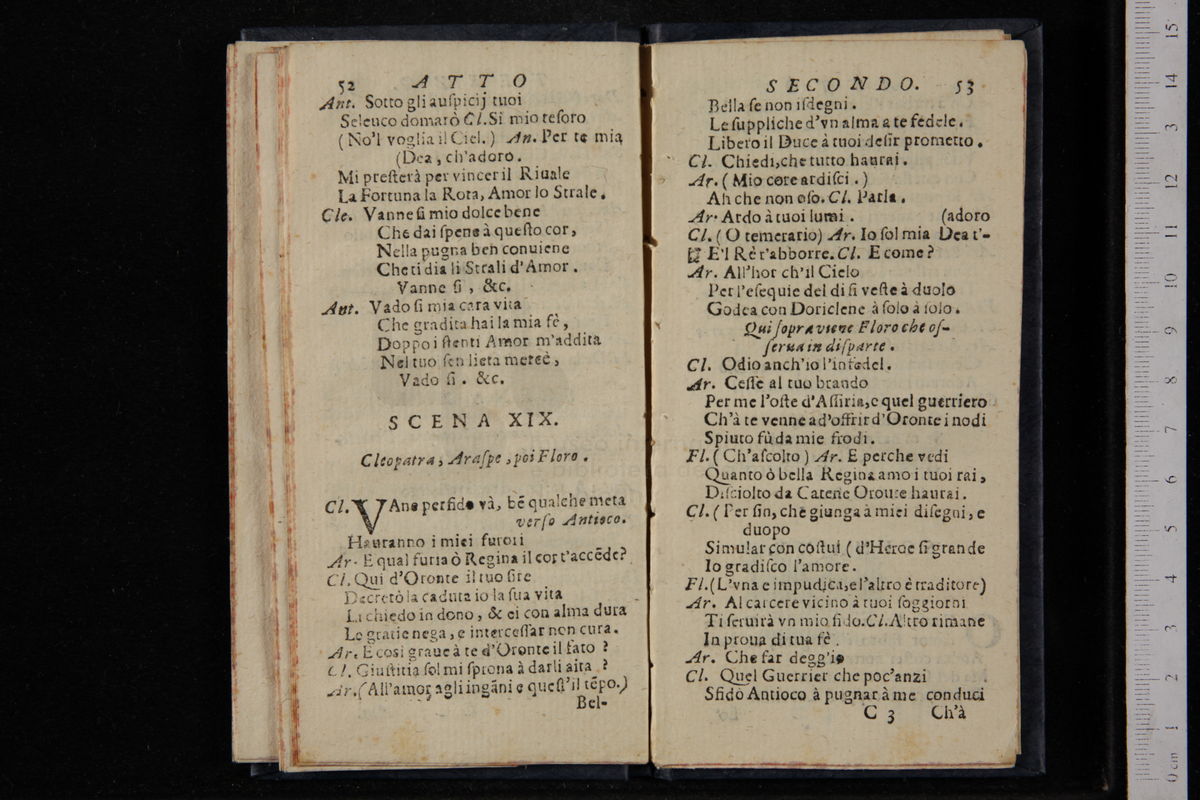 52 ATTO
Ant. Sotto gli auſpicij tuoi
Seleuco domarò Cl. Si mio teſoro
(No'l voglia il Ciel.) An. Per te mia
(Dea, ch'adoro.
Mi preſterà per vincer il Riuale
La Fortuna la Rota, Amor lo Strale.
Cle. Vanne ſi mio dolce bene
Che dai ſpene à queſto cor,
Nella pugna ben conuiene
Che ti dia li Strali d'Amor.
Vanne ſi, &c.
Ant. Vado ſi mia cara vita
Che gradita hai la mia fè,
Doppo i ſtenti Amor m'addita
Nel tuo ſen lieta mercè,
Vado ſi. &c.
SCENA XIX.
Cleopatra, Araſpe, poi Floro.
Cl. VAne perfido và, bē qualche meta
verſo Antioco.
Hauranno i miei furori
Ar. E qual furia ò Regina il cor t'accēde?
Cl. Qui d'Oronte il tuo ſire
Decretò la caduta io la ſua vita
Li chiedo in dono, & ei con alma dura
Le gratie nega, e interceſſar non cura.
Ar. E cosi graue à te d'Oronte il fato?
Cl. Giuſtitia ſol mi ſprona à darli aita?
Ar. (All'amor, agli ingāni e queſt'il tēpo.)
Bel-
SECONDO. 53
Bella ſe non iſdegni.
Le ſuppliche d'vn alma a te fedele.
Libero il Duce à tuoi deſir prometto.
Cl. Chiedi, che tutto haurai.
Ar. (Mio core ardiſci.)
Ah che non oſo. Cl. Parla.
Ar. Ardo à tuoi lumi. (adoro
Cl. (O temerario) Ar. Io ſol mia Dea t'-
E'l Rè t'abborre. Cl. E come?
Ar. All'hor ch'il Cielo
Per l'eſequie del dì ſi veſte à duolo
Godea con Doriclene à ſolo à ſolo.
Qui ſoprauiene Floro che oſ-
ſerua in diſparte.
Cl. Odio anch'io l'infedel.
Ar. Ceſſe al tuo brando
Per me l'oſte d'Aſſiria, e quel guerriero
Ch'à te venne ad'offrir d'Oronte i nodi
Spinto fù da mie frodi.
Fl. (Ch'aſcolto) Ar. E perche vedi
Quanto ò bella Regina amo i tuoi rai,
Diſciolto da Catene Oronte haurai.
Cl. (Per fin, che giunga à miei diſegni, e
duopo
Simular con coſtui (d'Heroe ſi grande
Io gradiſco l'amore.
Fl. (L'vna e impudica, e l'altro è traditore)
Ar. Al carcere vicino à tuoi ſoggiorni
Ti ſeruirà vn mio fido. Cl. Altro rimane
In proua di tua fè.
Ar. Che far degg'io
Cl. Quel Guerrier che poc'anzi
Sfidò Antioco à pugnar à me conduci
C 3 Ch'à